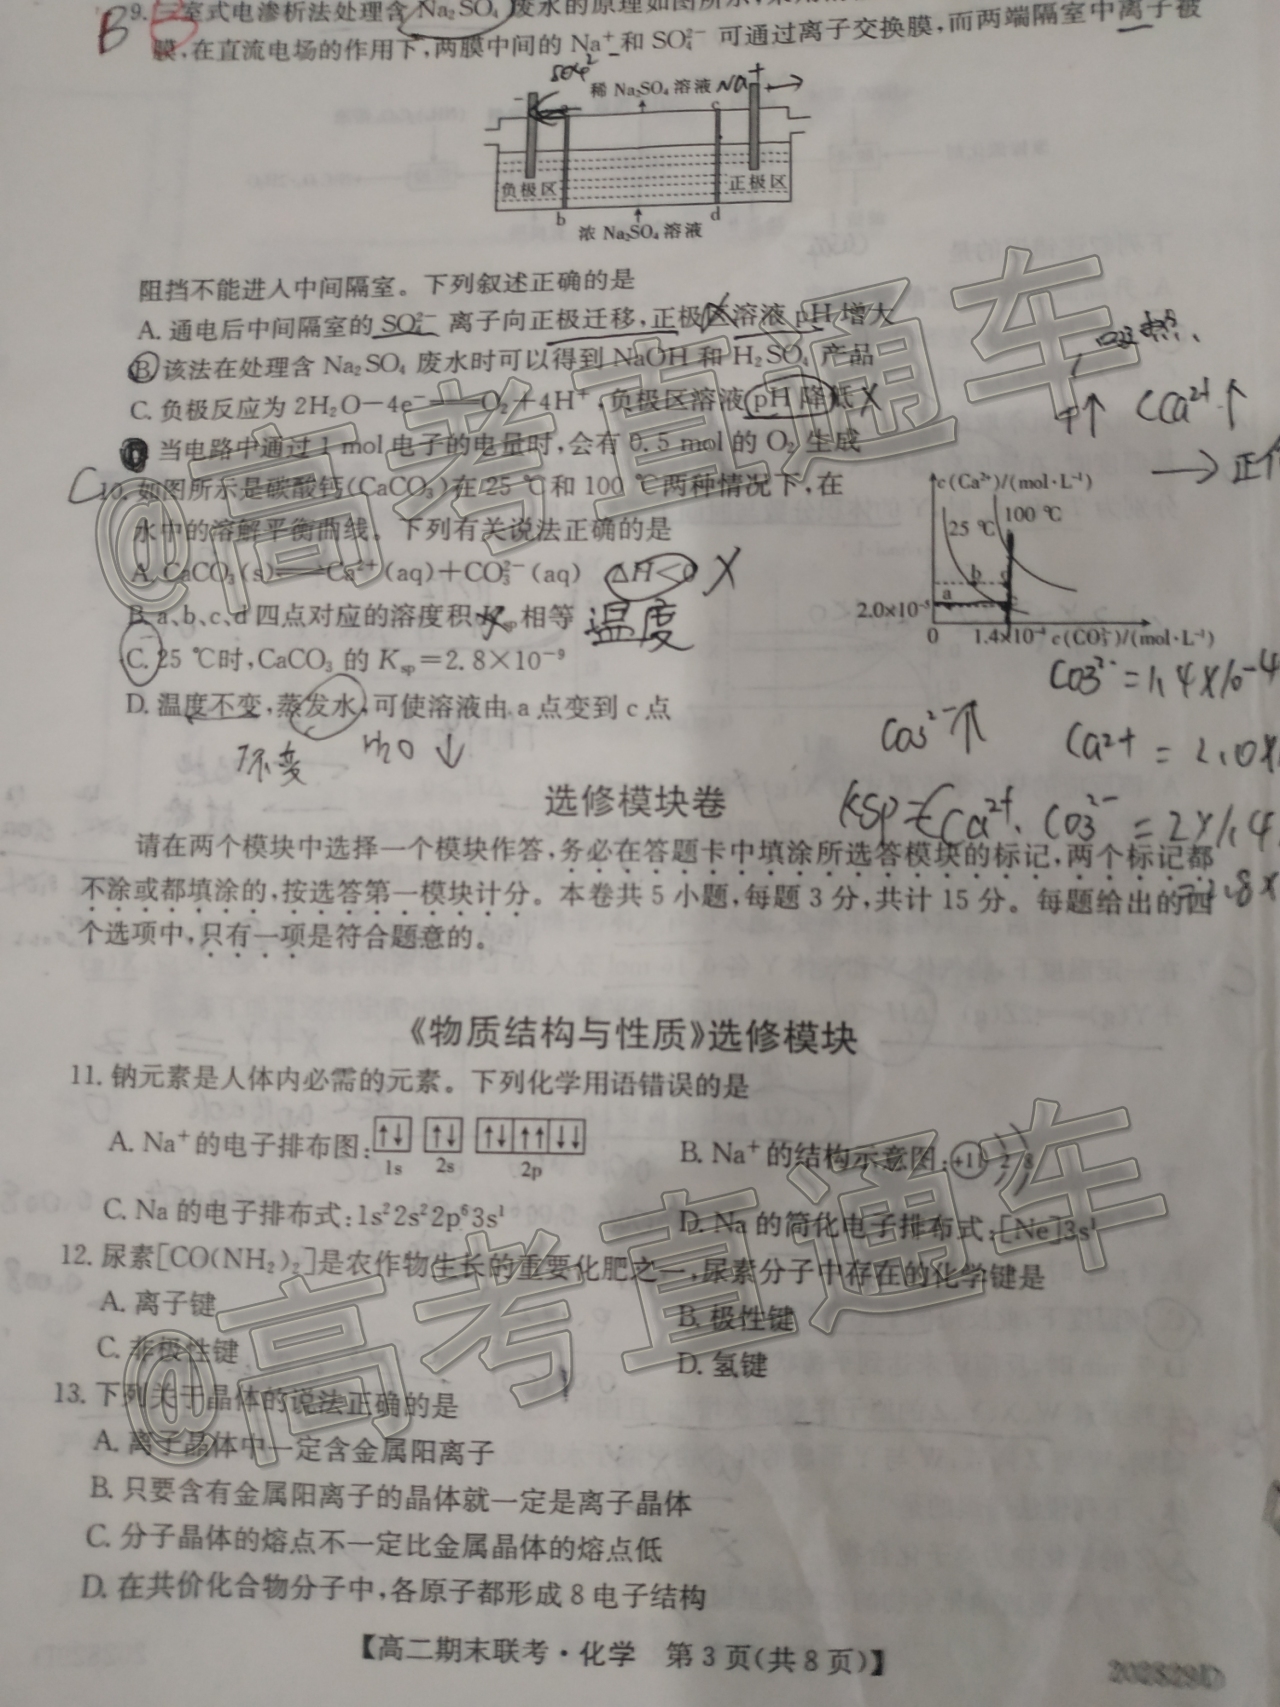 9. 三室式电渗析法处理含 Na₂SO₄ 废水的原理如图所示,
B B
膜,在直流电场的作用下,两膜中间的 Na⁺ 和 SO₄²⁻ 可通过离子交换膜,而两端隔室中离子被
SO₄²⁻
稀 Na₂SO₄ 溶液
Na⁺
c
负极区
正极区
b
d
浓 Na₂SO₄ 溶液
阻挡不能进入中间隔室。下列叙述正确的是
A. 通电后中间隔室的 SO₄²⁻ 离子向正极迁移,正极区溶液 pH 增大
B. 该法在处理含 Na₂SO₄ 废水时可以得到 NaOH 和 H₂SO₄ 产品
C. 负极反应为 2H₂O－4e⁻══O₂＋4H⁺,负极区溶液 pH 降低 X
D. 当电路中通过 1 mol 电子的电量时,会有 0.5 mol 的 O₂ 生成
吸热
T↑ C Ca²⁺ ↑
→ 正
C
10. 如图所示是碳酸钙(CaCO₃)在 25 ℃和 100 ℃两种情况下,在
水中的溶解平衡曲线。下列有关说法正确的是
A. CaCO₃(s)⇌Ca²⁺(aq)＋CO₃²⁻(aq) ΔH<0 X
B. a、b、c、d 四点对应的溶度积 Ksp 相等 温度
C. 25 ℃时,CaCO₃ 的 Ksp＝2.8×10⁻⁹
D. 温度不变,蒸发水,可使溶液由 a 点变到 c 点
不变 H₂O ↓
c(Ca²⁺)/(mol·L⁻¹)
25 ℃ 100 ℃
b
a
2.0×10⁻⁵
0 1.4×10⁻⁴ c(CO₃²⁻)/(mol·L⁻¹)
CO₃²⁻ = 1.4×10⁻⁴
CO₃²⁻↑ Ca²⁺ = 2.0×
Ksp = Ca²⁺. CO₃²⁻ = 2×1.4
=2.8×
选修模块卷
请在两个模块中选择一个模块作答,务必在答题卡中填涂所选答模块的标记,两个标记都
不涂或都填涂的,按选答第一模块计分。本卷共 5 小题,每题 3 分,共计 15 分。每题给出的四
个选项中,只有一项是符合题意的。
《物质结构与性质》选修模块
11. 钠元素是人体内必需的元素。下列化学用语错误的是
A. Na⁺的电子排布图: ↑↓ ↑↓ ↑↓ ↑↑ ↓↓
1s 2s 2p
B. Na⁺的结构示意图: +11 2 8
C. Na 的电子排布式:1s²2s²2p⁶3s¹
D. Na 的简化电子排布式:[Ne]3s¹
12. 尿素[CO(NH₂)₂]是农作物生长的重要化肥之一,尿素分子中存在的化学键是
A. 离子键
B. 极性键
C. 非极性键
D. 氢键
13. 下列关于晶体的说法正确的是
A. 离子晶体中一定含金属阳离子
B. 只要含有金属阳离子的晶体就一定是离子晶体
C. 分子晶体的熔点不一定比金属晶体的熔点低
D. 在共价化合物分子中,各原子都形成 8 电子结构
【高二期末联考·化学 第 3 页(共 8 页)】
202829D
@高考直通车
@高考直通车